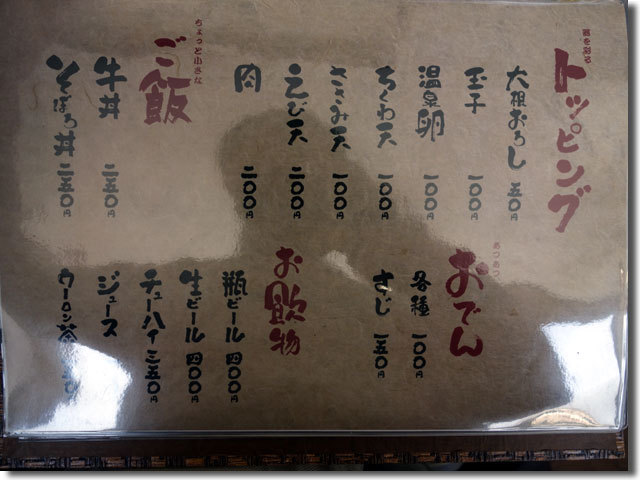 麺を彩る
トッピング
大根おろし 五〇円
玉子 一〇〇円
温泉卵 一〇〇円
ちくわ天 一〇〇円
ささみ天 一〇〇円
えび天 二〇〇円
肉 二〇〇円
ちょっと小さな
ご飯
牛丼 二五〇円
そぼろ丼 二五〇円
あつあつ
おでん
各種 一〇〇円
すじ 一五〇円
お飲物
瓶ビール 四〇〇円
生ビール 四〇〇円
チューハイ 三五〇円
ジュース
ウーロン茶